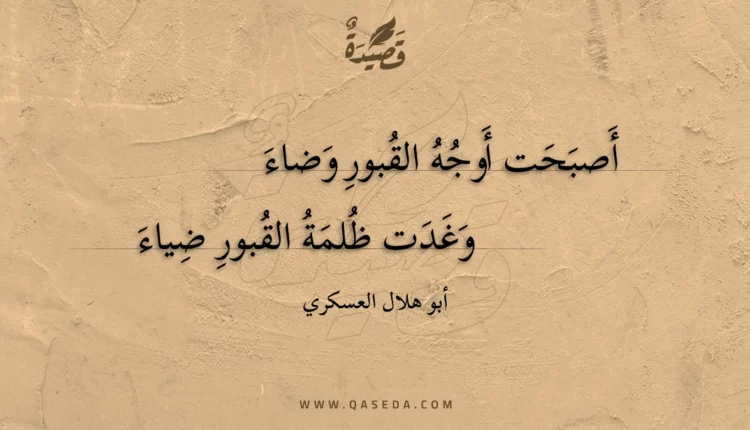 قصيدة
أَصبَحَت أَوجُهُ القُبورِ وَضاءَ
وَغَدَت ظُلمَةُ القُبورِ ضِياءَ
أبو هلال العسكري
WWW.QASEDA.COM